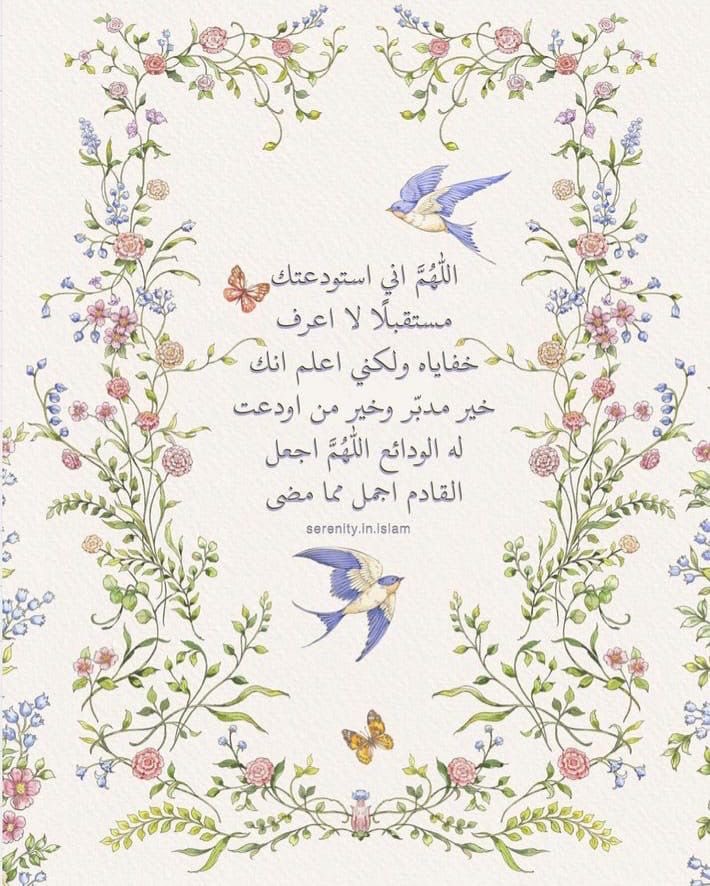 اللّٰهُمَّ اني استودعتك
مستقبلًا لا اعرف
خفاياه ولكني اعلم انك
خير مدبّر وخير من اودعت
له الودائع اللّٰهُمَّ اجعل
القادم اجمل مما مضى
serenity.in.islam